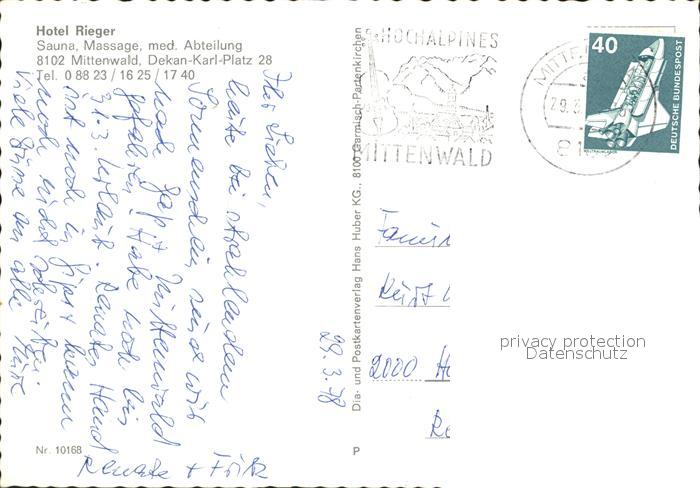 Hotel Rieger
Sauna, Massage, med. Abteilung
8102 Mittenwald, Dekan-Karl-Platz 28
Tel. 0 88 23 / 16 25 / 17 40
Ihr Lieben,
heute bei strahlendem
Sonnenschein sind wir
nach Mittenwald
gefahren. Habe noch bis
31.3. Urlaub. Renates Hand
ist noch in Gips + kann
noch nicht
Viele Grüße an alle
Renate + Fritz
29.3.78
Nr. 10168
P
Dia- und Postkartenverlag Hans Huber KG., 8100 Garmisch-Partenkirchen
HOCHALPINES
MITTENWALD
40
DEUTSCHE BUNDESPOST
2000 H
privacy protection
Datenschutz